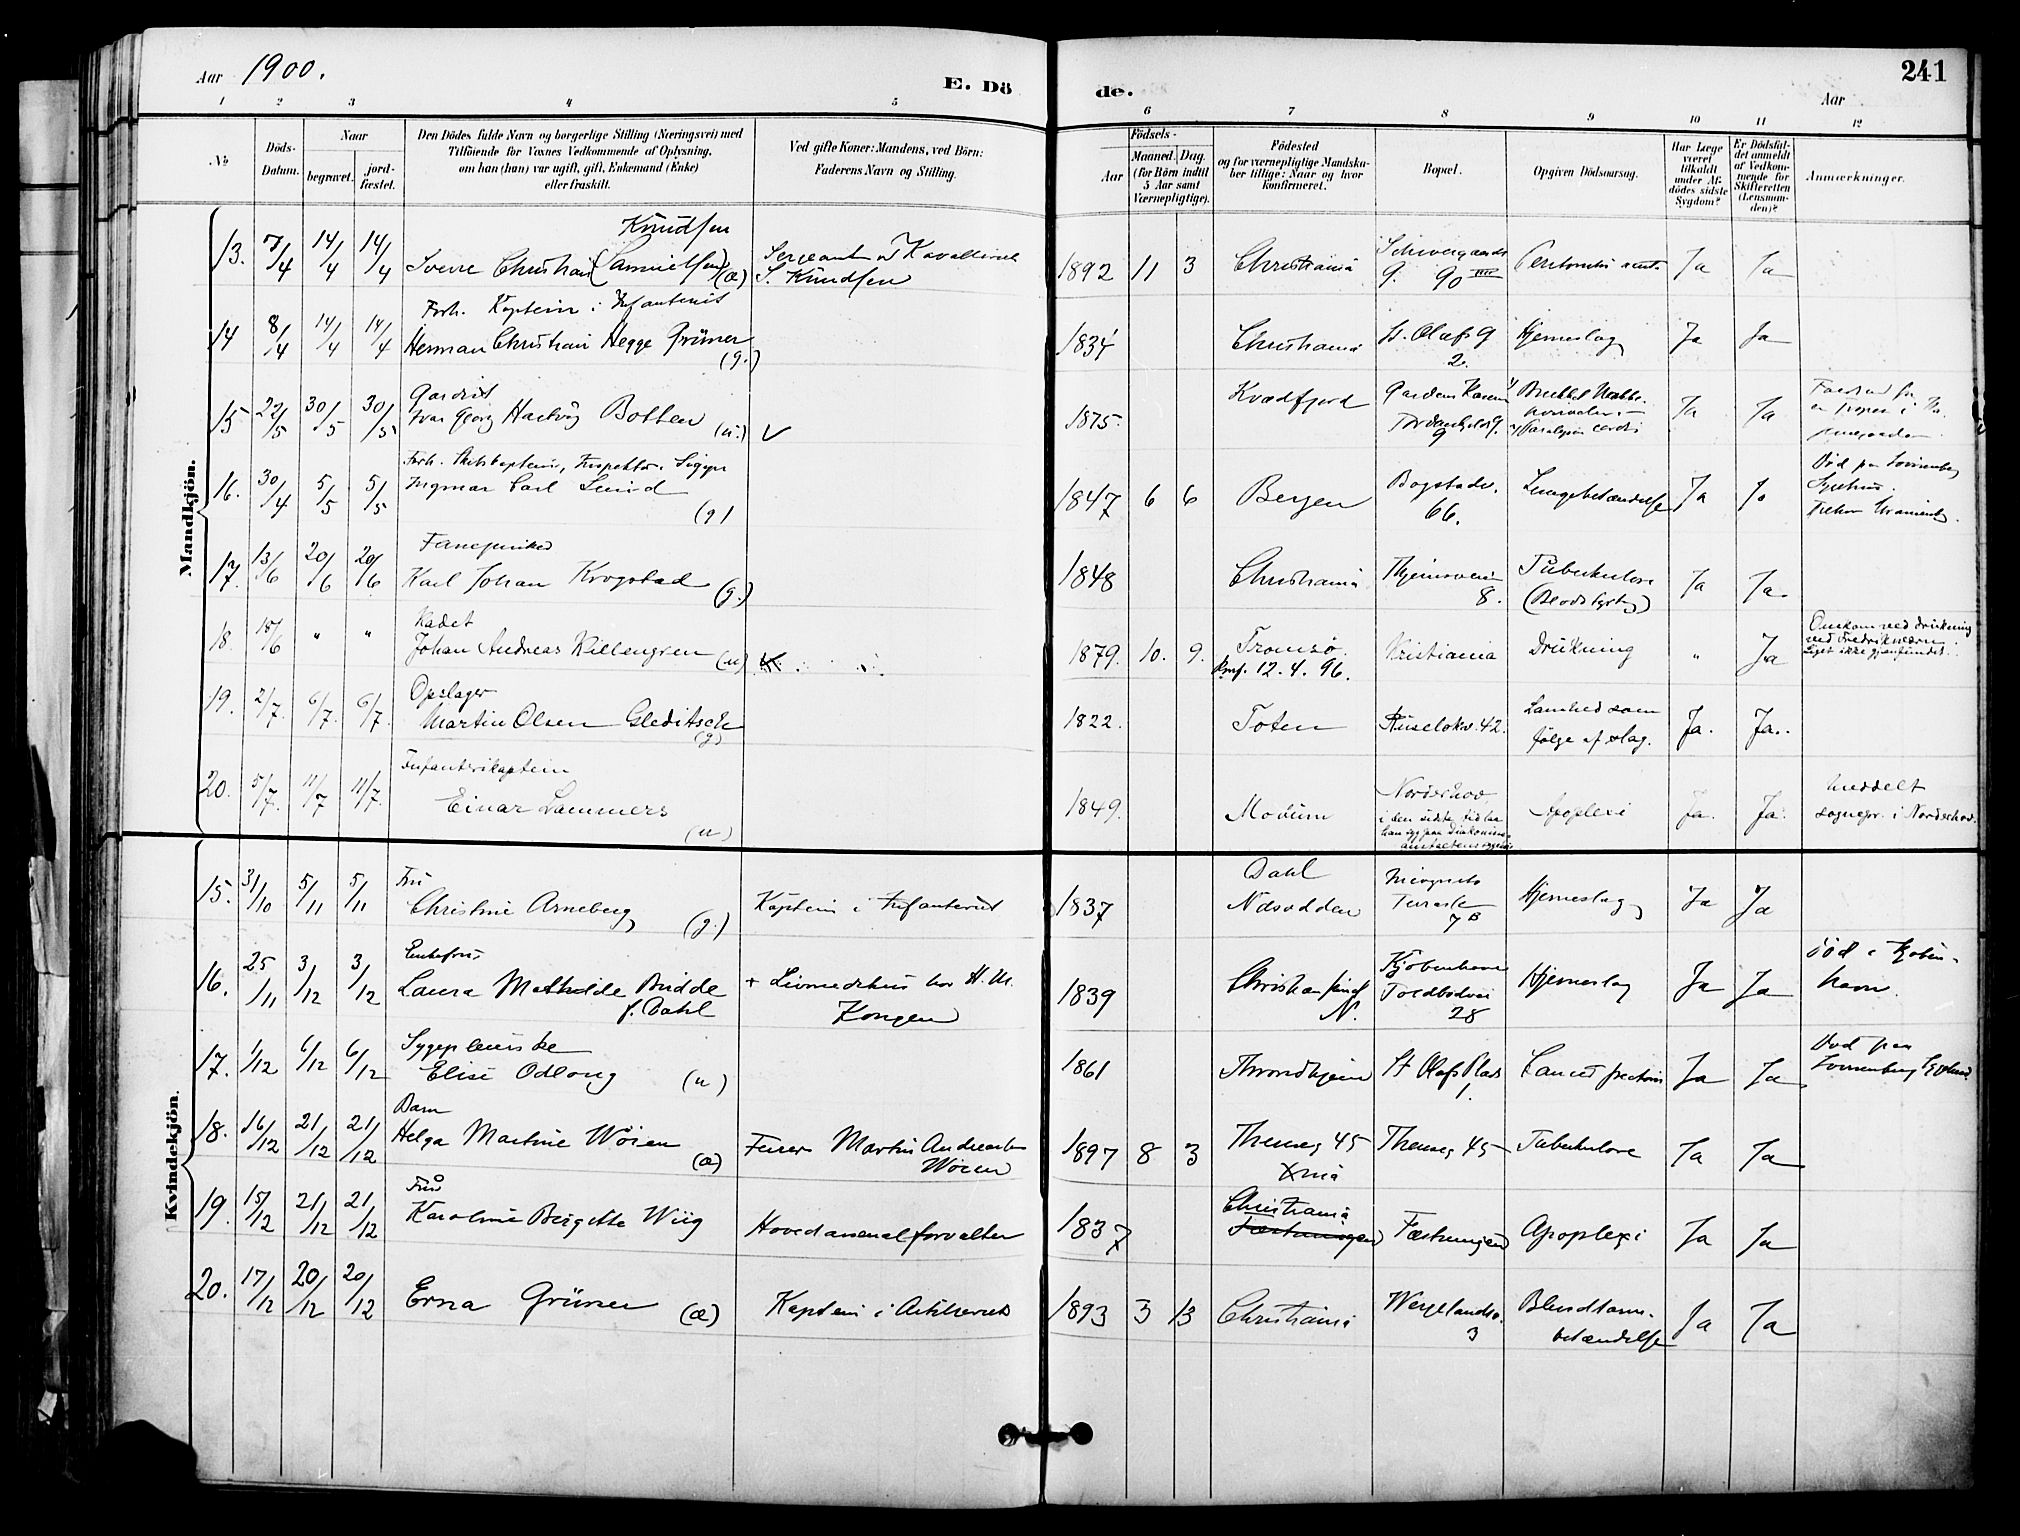 Aar 1900.
E. Dö
de.
Aar
241
1 2 3 4 5 6 7 8 9 10 11 12
No
Döds-Datum.
Naar
begravet.
jord-fæstet.
Den Dödes fulde Navn og borgerlige Stilling (Næringsvei) med
Tilföiende for Voxnes Vedkommende af Oplysning,
om han (hun) var ugift, gift, Enkemand (Enke)
eller fraskilt.
Ved gifte Koner: Mandens, ved Börn:
Faderens Navn og Stilling.
Födsels-
Aar
Maaned.
Dag.
(for Börn indtil
5 Aar samt
Værnepligtige).
Födested
og for værnepligtige Mandska-
ber tillige: Naar og hvor
konfirmeret.
Bopæl.
Opgiven Dödsaarsag.
Har Læge
været
tilkaldt
under Af-
dödes sidste
Sygdom?
Er Dödsfal-
det anmeldt
af Vedkom-
mende for
Skifteretten
(Lensman-
den)?
Anmærkninger.
Mandkjön.
Knudsen
13. 7/4 14/4 14/4 Sverre Christian (Samuelsen) (æ) Sergeant v/ Kavalleriet
S. Knudsen
1892 11 3 Christiania Schweigaards
g. 90 Peritonitis Ja Ja
Forh. Kaptein i Infanteriet
14 8/4 14/4 14/4 Herman Christian Hegge Grüner (g.)
1834 Christiania St. Olafs g 2. Hjerneslag Ja Ja
Gardist
15 22/5 30/5 30/5 Ivar Georg Hartvig Botten (u.)
1875. Kvædfjord Gardens Kaserne
9 Ja Ja
16. 30/4 5/5 5/5 Ingmar Carl Lund (g)
1847 6 6 Bergen Bogstadv.
66. Lungebetændelse Ja Ja
Död paa Lovisenberg
Sygehus.
17. 13/6 20/6 20/6 Fanejunker
Karl Johan Krogstad (g.)
1848 Christiania 8. Tuberkulose
(Blodstyrtng) Ja Ja.
18. 15/6 " " Kadet
Johan Andreas Killengren (u)
1879. 10. 9. Tromsø.
Konf. 12.4.96. Kristiania Drukning " Ja
Omkom ved drukning
ved Fredriksværn.
Liget ikke gjenfundet.
19. 2/7. 6/7. 6/7. Opslager
Martin Olsen Gleditsch (g)
1822. Toten Ruseløkv. 42. Lamhed som
følge af slag. Ja. Ja.
20. 5/7. 11/7 11/7. Infanterikaptein
Einar Lammers (u)
1849. Modum Norderhov,
i den sidste tid laa
han syg paa Diakonisse-
Apoplexi Ja. Ja.
Meddelt
sognepr. i Norderhov.
Kvindekjön.
15. 31/10 5/11 5/11 Fru
Christine Arneberg (g.) Kaptein i Infanteriet
1837 Dahl
Næsodden Incognito
Terrasse
7 B Hjerneslag Ja Ja
16. 25/11 3/12 3/12 Enkefru
Laura Mathilde Budde
f. Dahl + Livmedikus hos H. M.
Kongen
1839 Christiansund
N. Kjøbenhavn
Toldbodvei
28 Hjerneslag Ja Ja
Död i Kjöben-
havn.
17. 1/12 6/12 6/12 Sygepleierske
Elise Odlong (u)
1861 Throndhjem St Olafs Plads
1. Ja Ja
Död paa
Lovisenberg Sygehus
18. 16/12 21/12 21/12 Barn
Helga Martine Wöien (æ) Furer Martin Andreas
Wöien
1897 8 3 Theresesg 45
Xania Theresesg 45 Tuberkulose Ja Ja
19. 15/12 21/12 21/12 Fru
Karoline Birgitte Wiig Hovedarsenalforvalter
1837 Christiania
Fæstningen Fæstningen Apoplexi Ja Ja
20. 17/12 20/12 20/12 Erna Grüner (æ) Kaptein i Artilleriet
1893 3 13 Christiania Wergelandsv.
3 Blindtarm-
betændelse Ja Ja